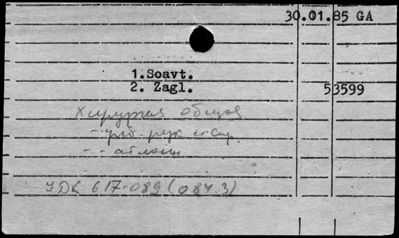 30.01.85 GA
1.Soavt.
2. Zagl.
53599
Хирургия общая
- атласы
УДК 617-089 (084.3)